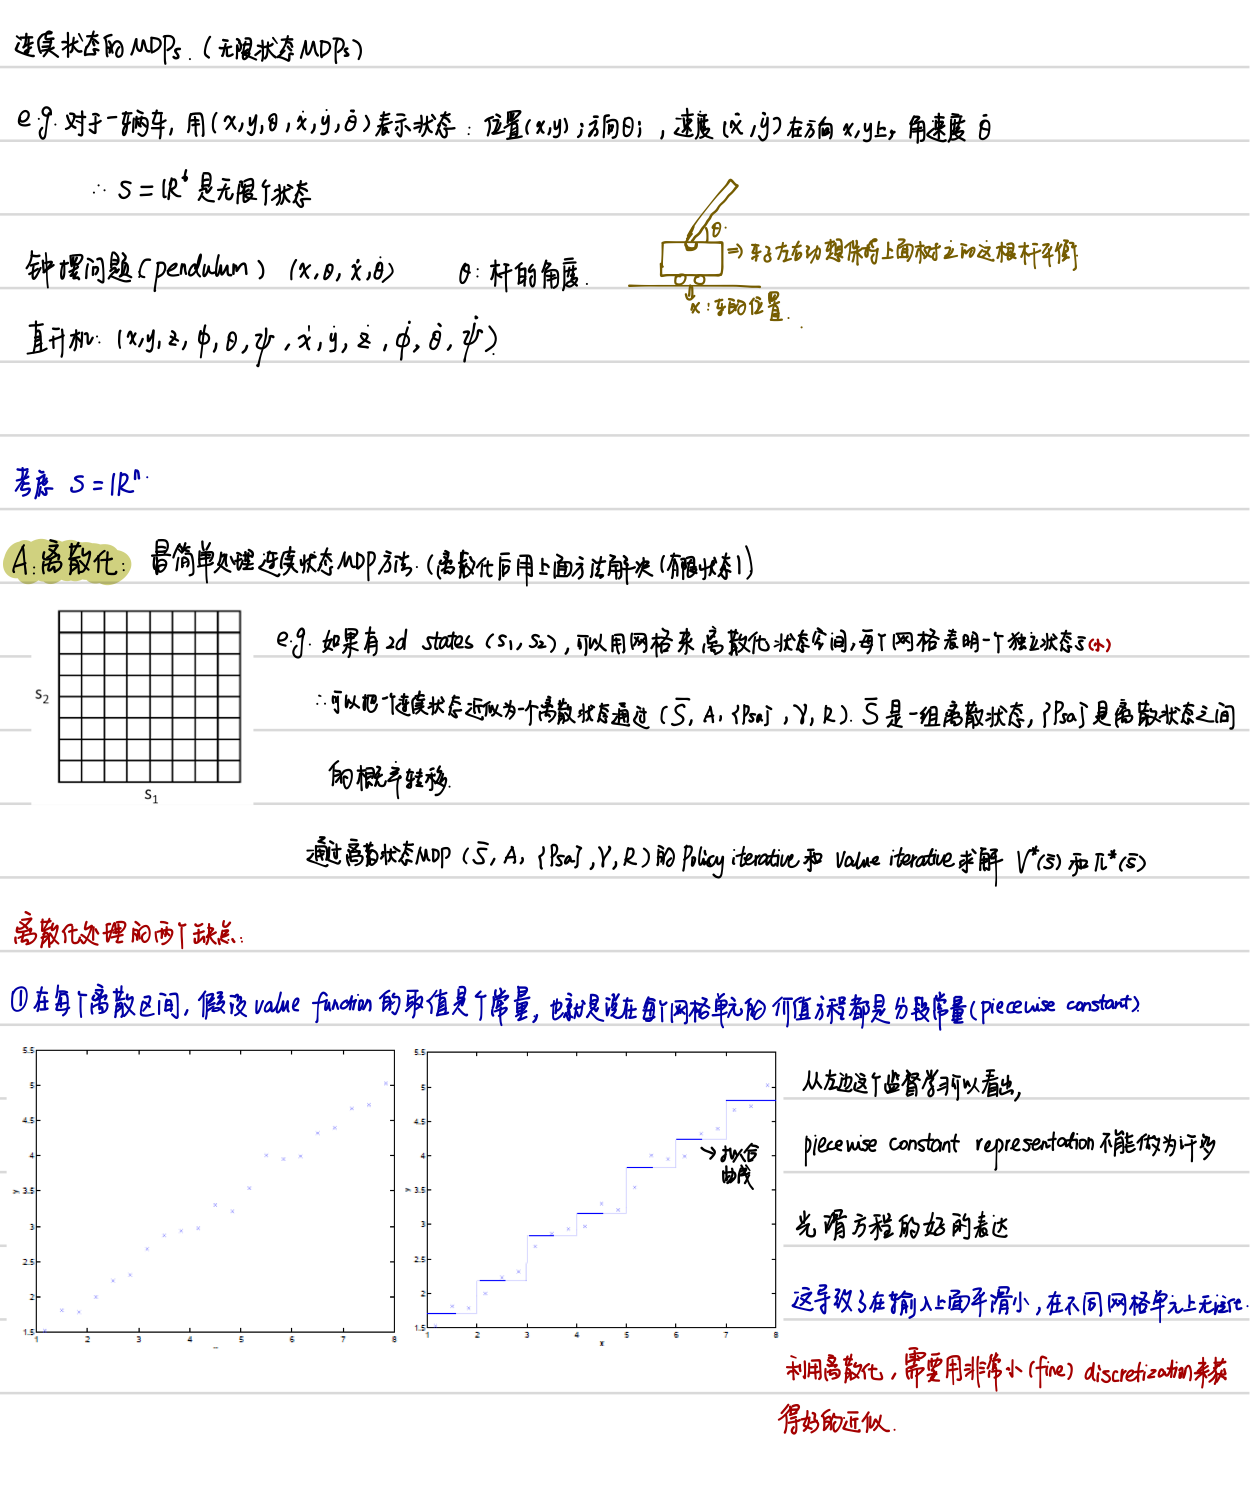 连续状态的MDPs.(无限状态MDPs)
e.g. 对于一辆车, 用(x,y,θ,ẋ,ẏ,θ̇)表示状态: 位置(x,y);方向θ;,速度(ẋ,ẏ)在方向x,y上, 角速度 θ̇
∴ S=ℝ⁶ 是无限个状态
钟摆问题(pendulum) (x,θ,ẋ,θ̇) θ: 杆的角度.
θ
⇒ 车子左右动想保持上面树立的这根杆平衡
x:车的位置.
直升机: (x,y,z,ϕ,θ,ψ,ẋ,ẏ,ż,ϕ̇,θ̇,ψ̇)
考虑 S=ℝⁿ.
A.离散化: 最简单处理连续状态MDP方法.(离散化后用上面方法解决(有限状态))
e.g. 如果有2d states (S₁,S₂),可以用网格来离散化状态空间,每个网格表明一个独立状态s̄(小)
∴可以把一个连续状态近似为一个离散状态通过(S̄,A,{Psa},γ,R). S̄是一组离散状态,{Psa}是离散状态之间
的概率转移.
S₂
S₁
通过离散状态MDP(S̄,A,{Psa},γ,R)的Policy iterative和 value iterative求解 V*(s̄)和π*(s̄)
离散化处理的两个缺点:
①在每个离散区间, 假设value function的取值是个常量, 也就是说在每个网格单元的价值方程都是分段常量(piecewise constant).
5.5
5
4.5
4
3.5
3
2.5
2
1.5
y
1 2 3 4 5 6 7 8
5.5
5
4.5
4
3.5
3
2.5
2
1.5
y
1 2 3 4 5 6 7 8
x
→拟合
曲线
从左边这个监督学习可以看出,
piecewise constant representation不能做为许多
光滑方程的好的表达
这导致了在输入上面平滑小,在不同网格单元上无
利用离散化, 需要用非常小(fine) discretization来获
得好的近似.